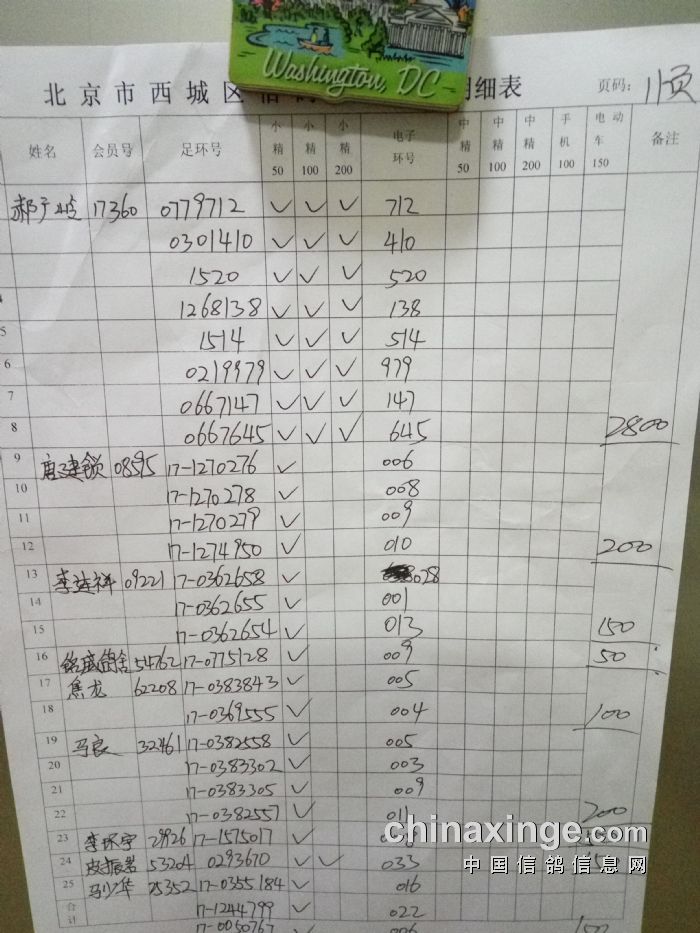 Washington, DC
北京市西城区信鸽 明细表 页码: 11页
姓名 会员号 足环号 小精50 小精100 小精200 电子环号 中精50 中精100 中精200 手机100 电动车150 备注
17360 0779712 ✓ ✓ ✓ 712
0301410 ✓ ✓ ✓ 410
1520 ✓ ✓ ✓ 520
4 1268138 ✓ ✓ ✓ 138
5 1514 ✓ ✓ ✓ 514
6 0219979 ✓ ✓ ✓ 979
7 0667147 ✓ ✓ ✓ 147
8 0667645 ✓ ✓ ✓ 645 2800
9 唐建锁 08595 17-1270276 ✓ 006
10 17-1270278 ✓ 008
11 17-1270279 ✓ 009
12 17-1274950 ✓ 010 200
13 李连祥 09221 17-0362658 ✓ 028
14 17-0362655 ✓ 001
15 17-0362654 ✓ 013 150
16 铭盛鸽舍 54762 17-0775128 ✓ 009 50
17 焦龙 62208 17-0383843 ✓ 005
18 17-0369555 ✓ 004 100
19 马良 32461 17-0382558 ✓ 005
20 17-0383302 ✓ 003
21 17-0383305 ✓ 009
22 17-0382557 ✓ 011 200
23 李环宇 29926 17-1575017 ✓
24 皮振岩 53204 0293670 ✓ ✓ 033
25 马少华 25352 17-0355184 ✓ 016
合计 17-1244799 ✓ 022
17-0050767 ✓ 006
chinaxinge.com
中国信鸽信息网